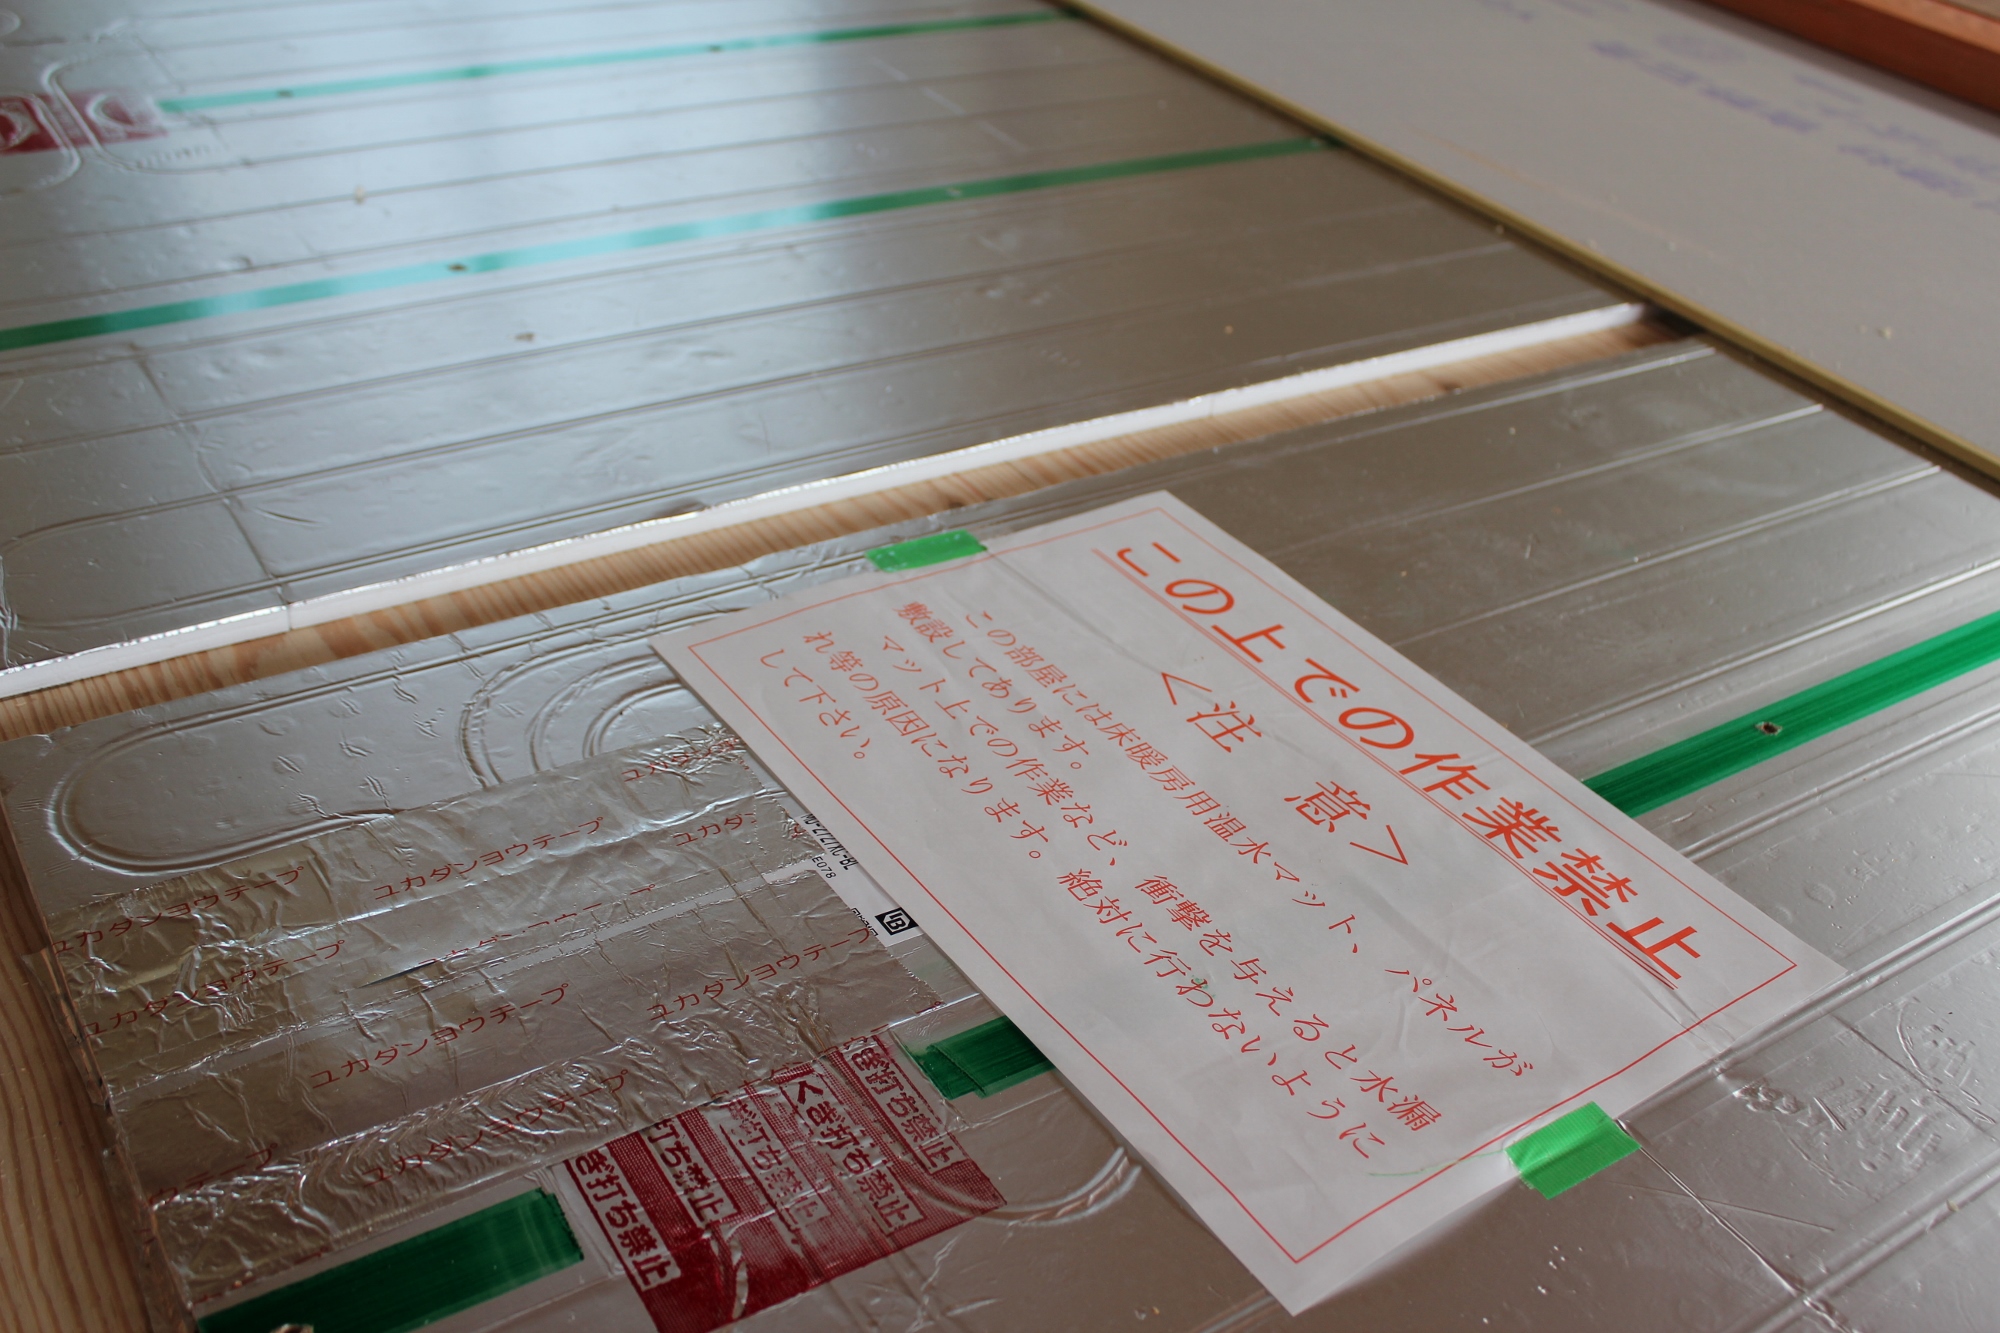 この上での作業禁止
<注 意>
この部屋には床暖房用温水マット、パネルが
敷設してあります。
マット上での作業など、衝撃を与えると水漏
れ等の原因になります。絶対に行わないように
して下さい。
ユカダ
ユカダンヨウテープ
ユカダンヨウテープ
ユカダンヨウテープ
ユカダンヨウテープ
ユカダンヨウテープ
ユカダンヨウテープ
ウテープ
E078
ぎ打ち禁止
くぎ打ち禁止
ぎ打ち禁止
打ち禁止
ぎ打ち禁止